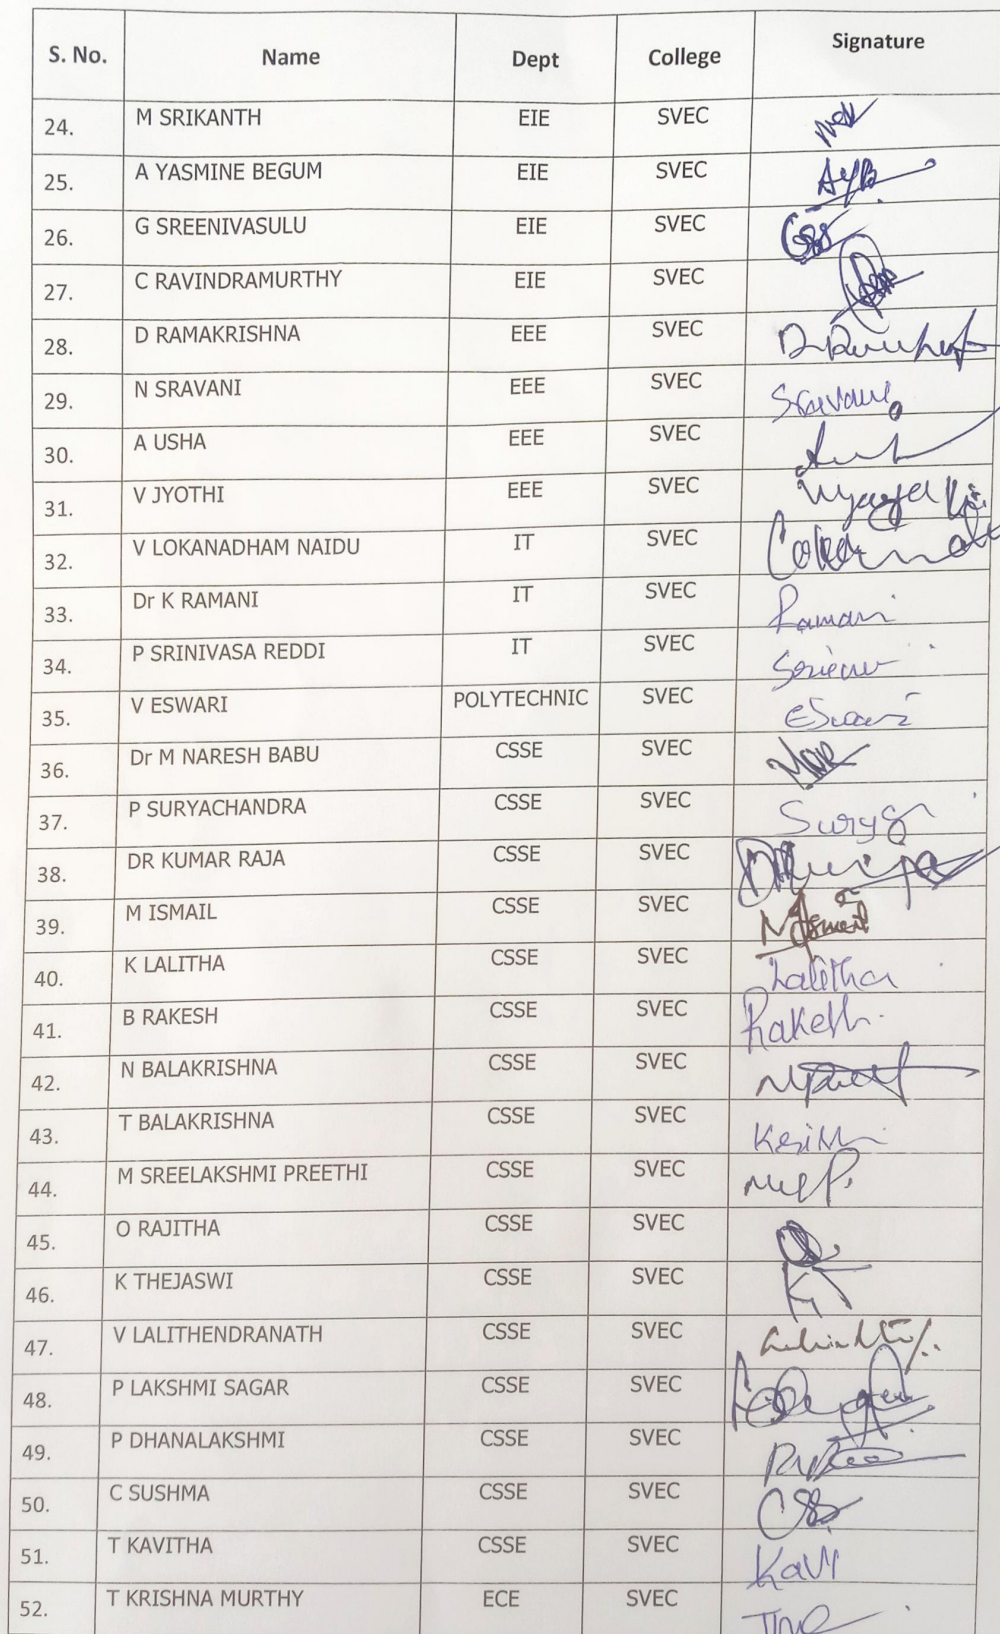 S. No. Name Dept College Signature
24. M SRIKANTH EIE SVEC
25. A YASMINE BEGUM EIE SVEC AYB
26. G SREENIVASULU EIE SVEC
27. C RAVINDRAMURTHY EIE SVEC
28. D RAMAKRISHNA EEE SVEC
29. N SRAVANI EEE SVEC Sravani
30. A USHA EEE SVEC
31. V JYOTHI EEE SVEC
32. V LOKANADHAM NAIDU IT SVEC
33. Dr K RAMANI IT SVEC Ramani
34. P SRINIVASA REDDI IT SVEC
35. V ESWARI POLYTECHNIC SVEC Eswari
36. Dr M NARESH BABU CSSE SVEC
37. P SURYACHANDRA CSSE SVEC Surya
38. DR KUMAR RAJA CSSE SVEC
39. M ISMAIL CSSE SVEC
40. K LALITHA CSSE SVEC Lalitha
41. B RAKESH CSSE SVEC Rakesh
42. N BALAKRISHNA CSSE SVEC
43. T BALAKRISHNA CSSE SVEC
44. M SREELAKSHMI PREETHI CSSE SVEC
45. O RAJITHA CSSE SVEC
46. K THEJASWI CSSE SVEC
47. V LALITHENDRANATH CSSE SVEC
48. P LAKSHMI SAGAR CSSE SVEC
49. P DHANALAKSHMI CSSE SVEC
50. C SUSHMA CSSE SVEC
51. T KAVITHA CSSE SVEC Kavi
52. T KRISHNA MURTHY ECE SVEC